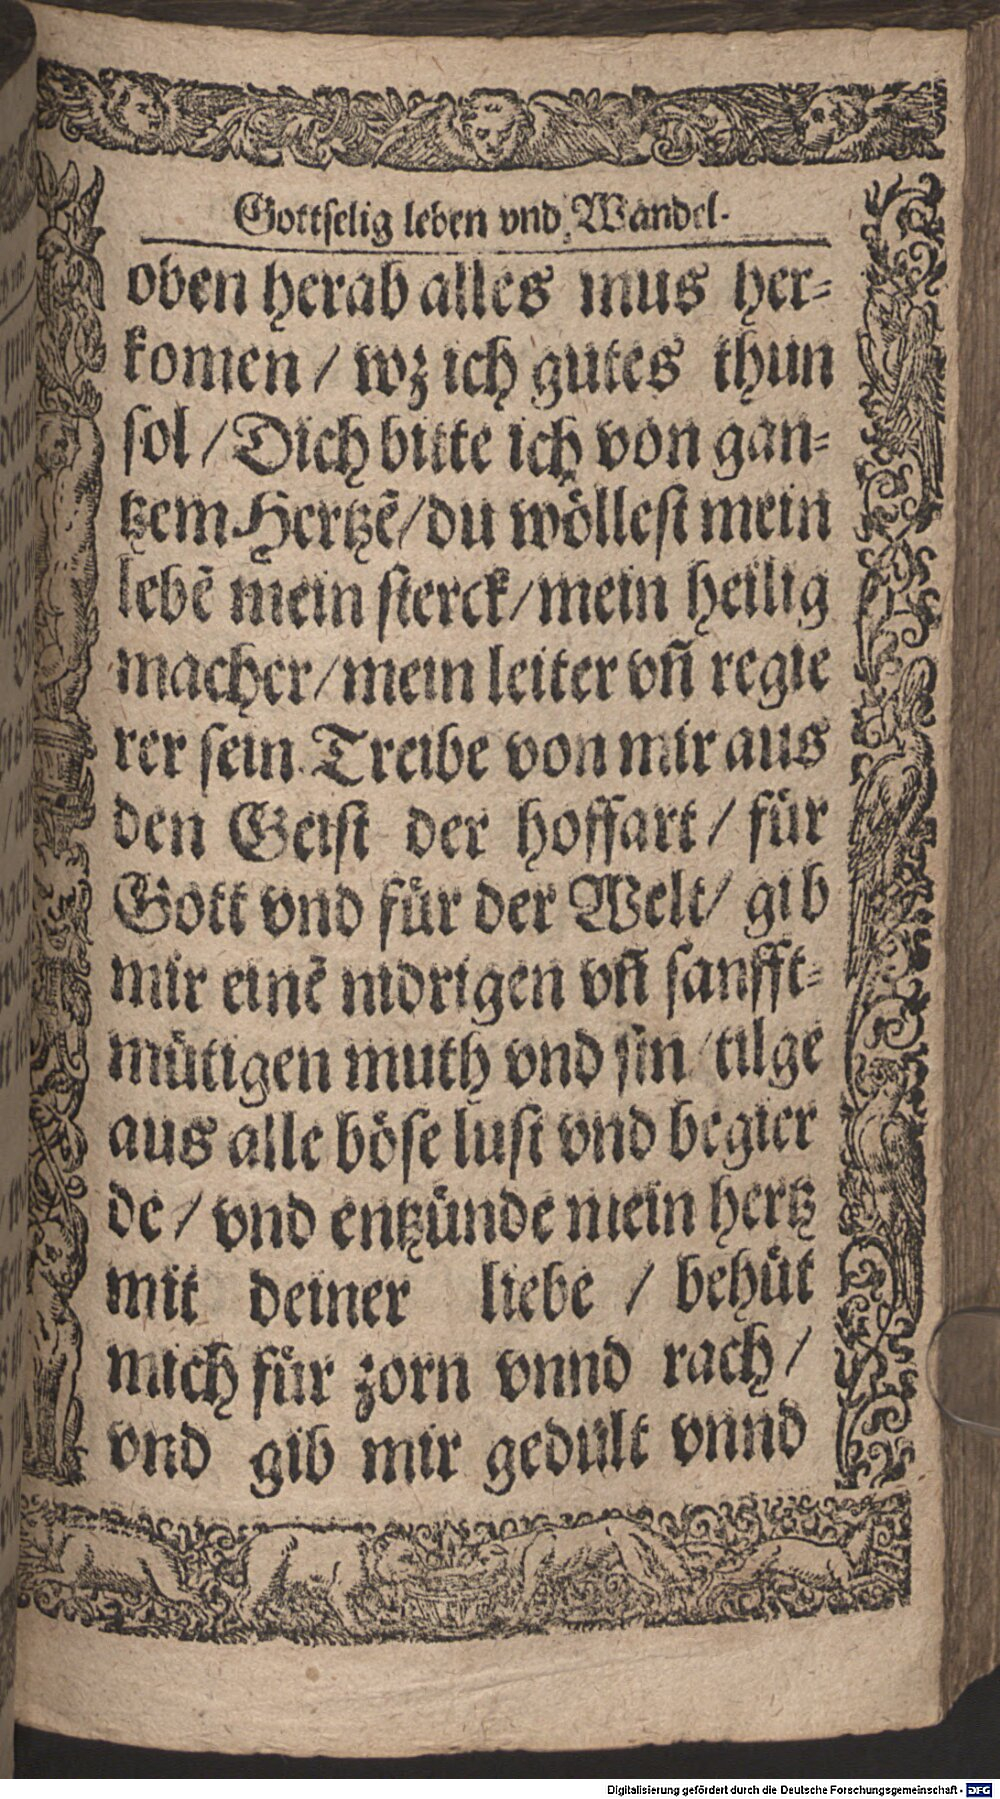 Gottselig leben vnd Wandel.
oben herab alles mus her⸗
komen / wz ich gutes thun
sol / Dich bitte ich von gan⸗
tzem Hertzẽ / du wöllest mein
lebẽ mein sterck / mein heilig
macher / mein leiter vñ regie
rer sein. Treibe von mir aus
den Geist der hoffart / für
Gott vnd für der Welt / gib
mir einẽ nidrigen vñ sanfft⸗
mütigen muth vnd sin / tilge
aus alle böse lust vnd begier
de / vnd entzünde mein hertz
mit deiner liebe / behüt
mich für zorn vnnd rach /
vnd gib mir gedult vnnd
Digitalisierung gefördert durch die Deutsche Forschungsgemeinschaft - DFG